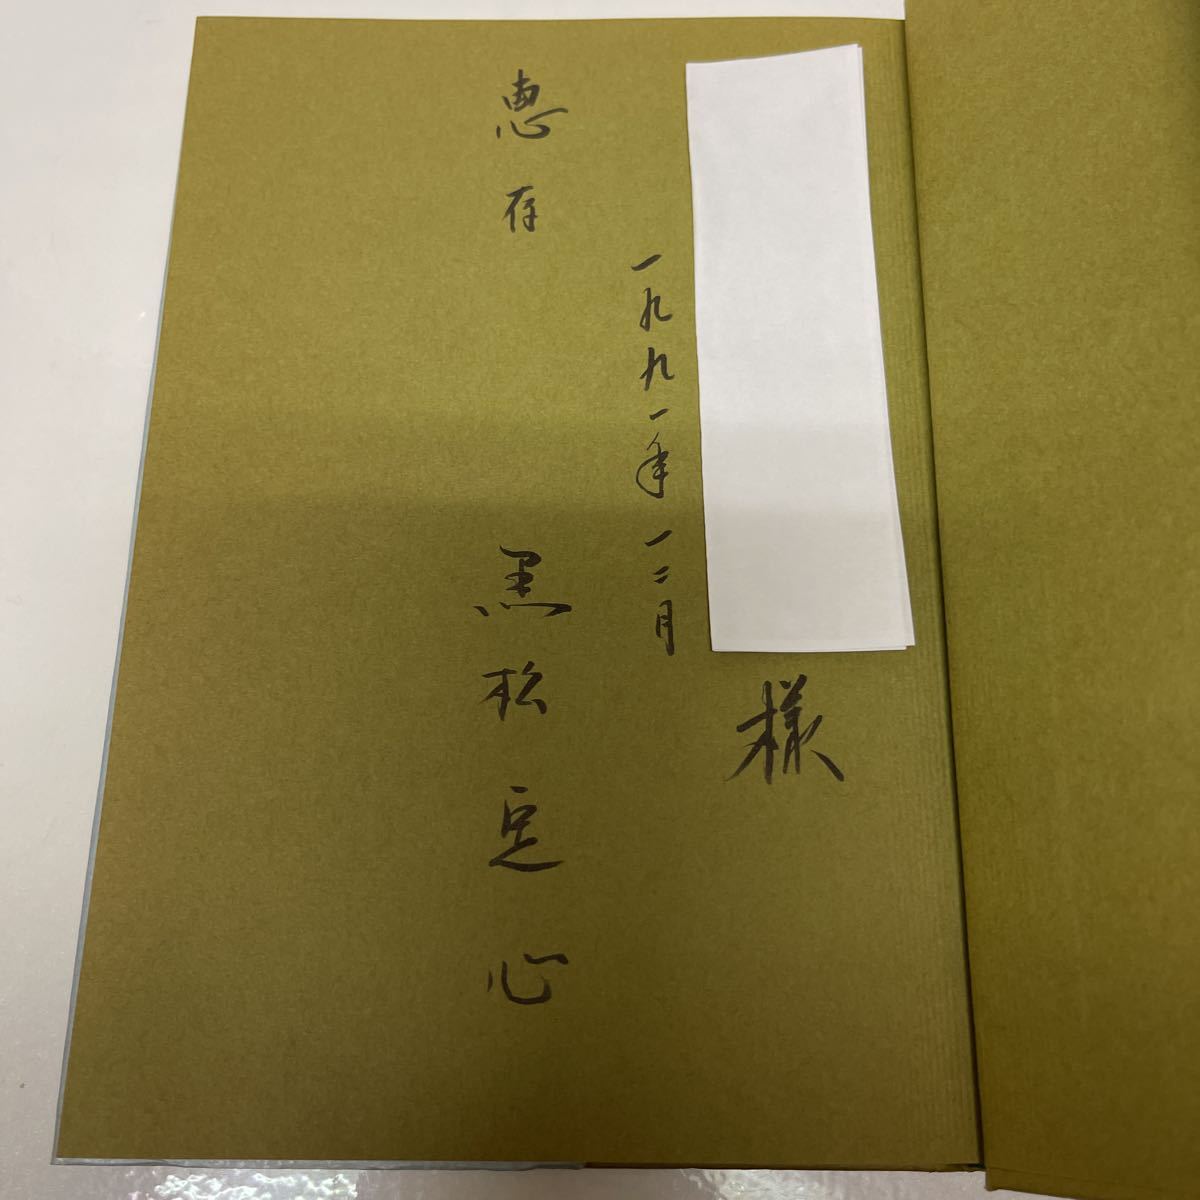 様
一九九一年一二月
恵存
黒松定心